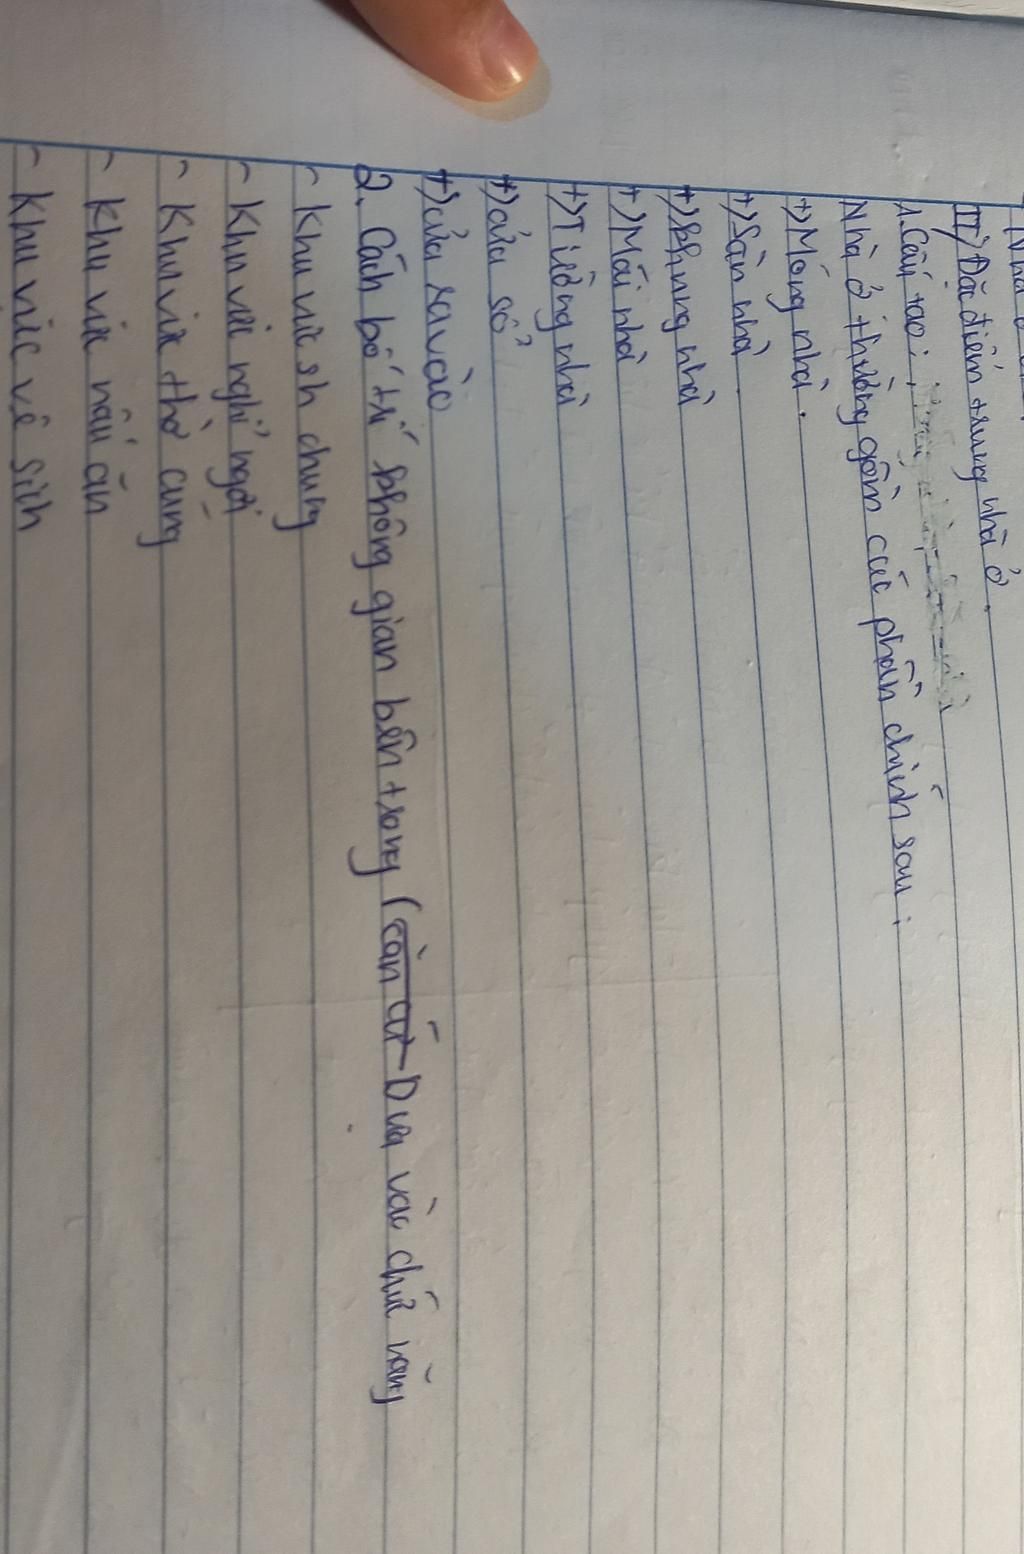 II) Đặc điểm trưng nhà ở.
1. Cấu tạo:
Nhà ở thường gồm các phần chính sau:
+) Móng nhà.
+) Sàn nhà.
+) Khung nhà
+) Mái nhà
+) Tường nhà
+) cửa sổ
+) cửa ra vào
2. Cách bố trí không gian bên trong (căn cứ Dựa vào chức năng
- Khu vức sh chung
- Khu vức nghỉ ngơi
- Khu vực thờ cúng
- khu vực nấu ăn
- khu vực vệ sinh